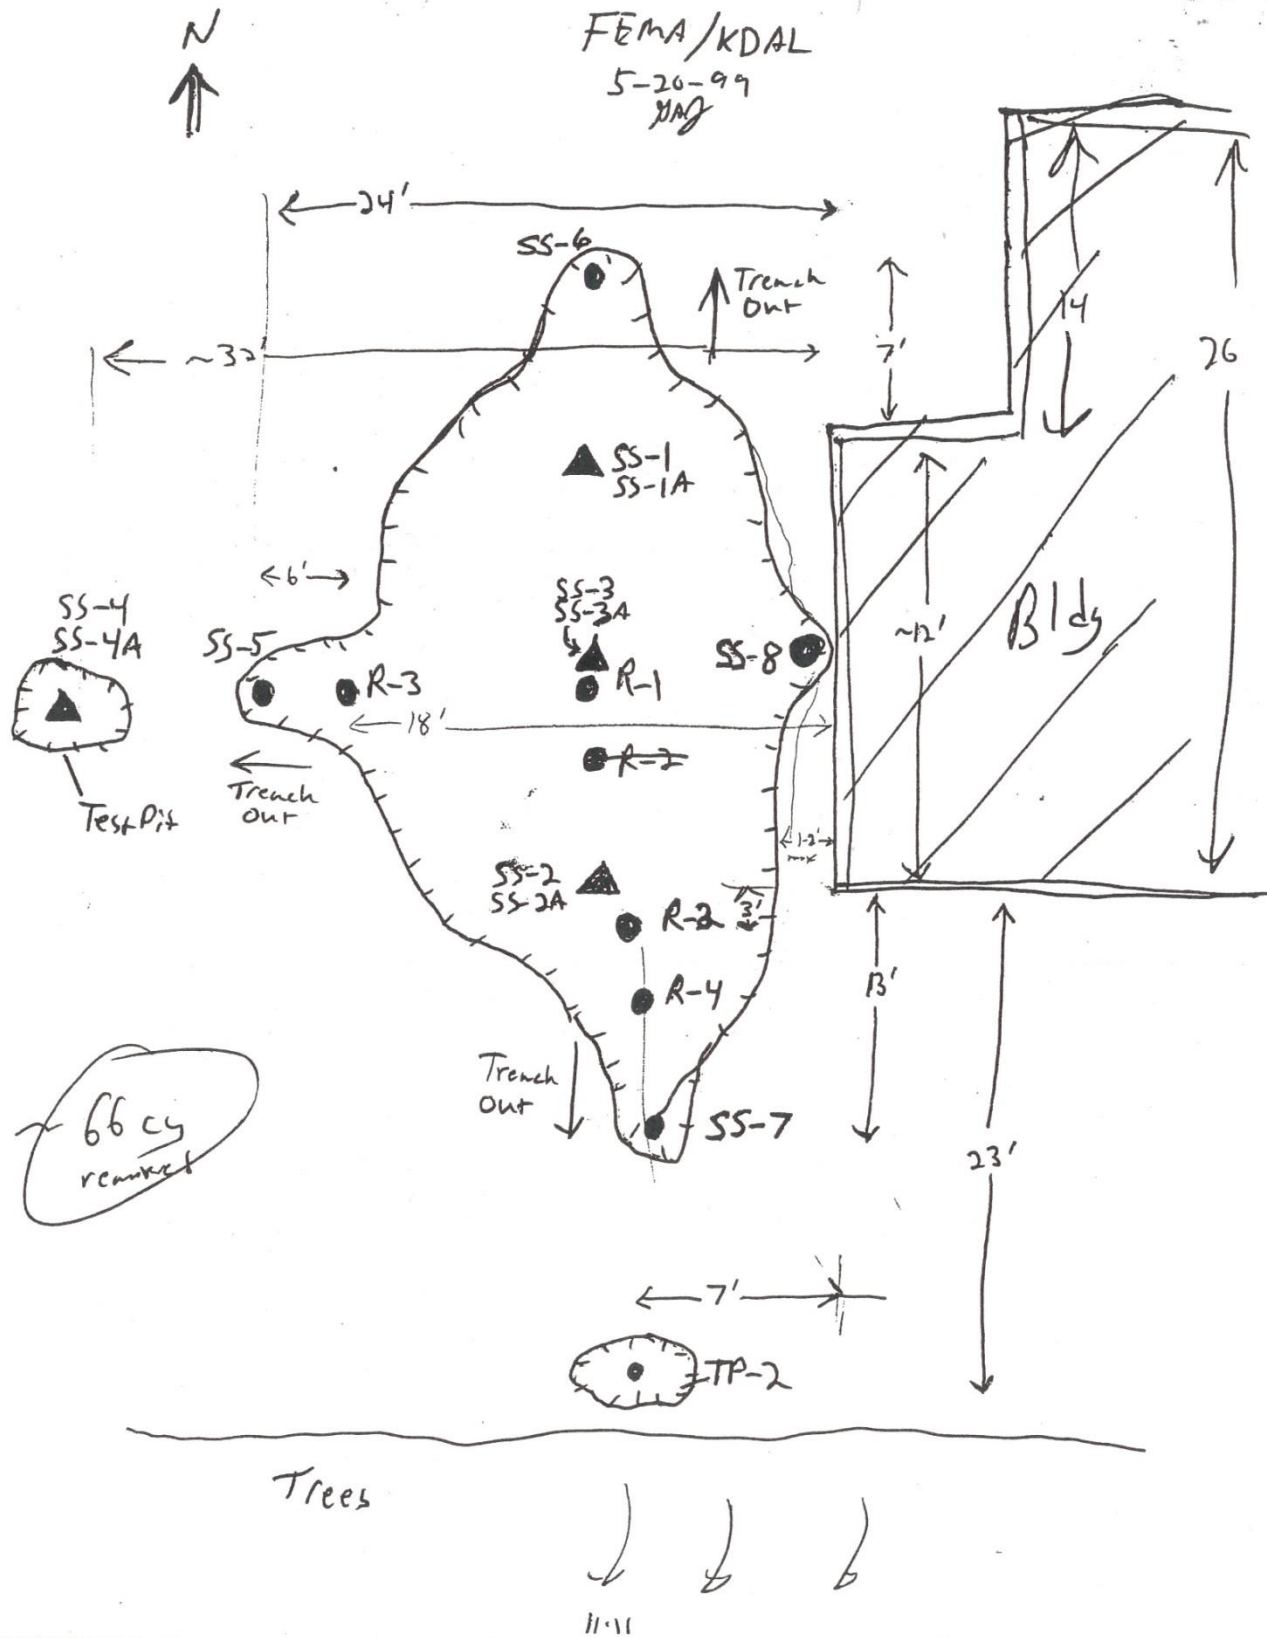 N
FEMA/KDAL
5-20-99
24'
SS-6
Trench
Out
14
~32'
7'
26
SS-1
SS-1A
6'
SS-3
SS-3A
SS-4
SS-4A
SS-5
SS-8
~12'
Bldg
R-3
R-1
18'
R-2
Trench
Out
Test Pit
1-2'
max
SS-2
SS-2A
R-2
3'
R-4
13'
Trench
Out
~66 cy
removed
SS-7
23'
7'
TP-2
Trees